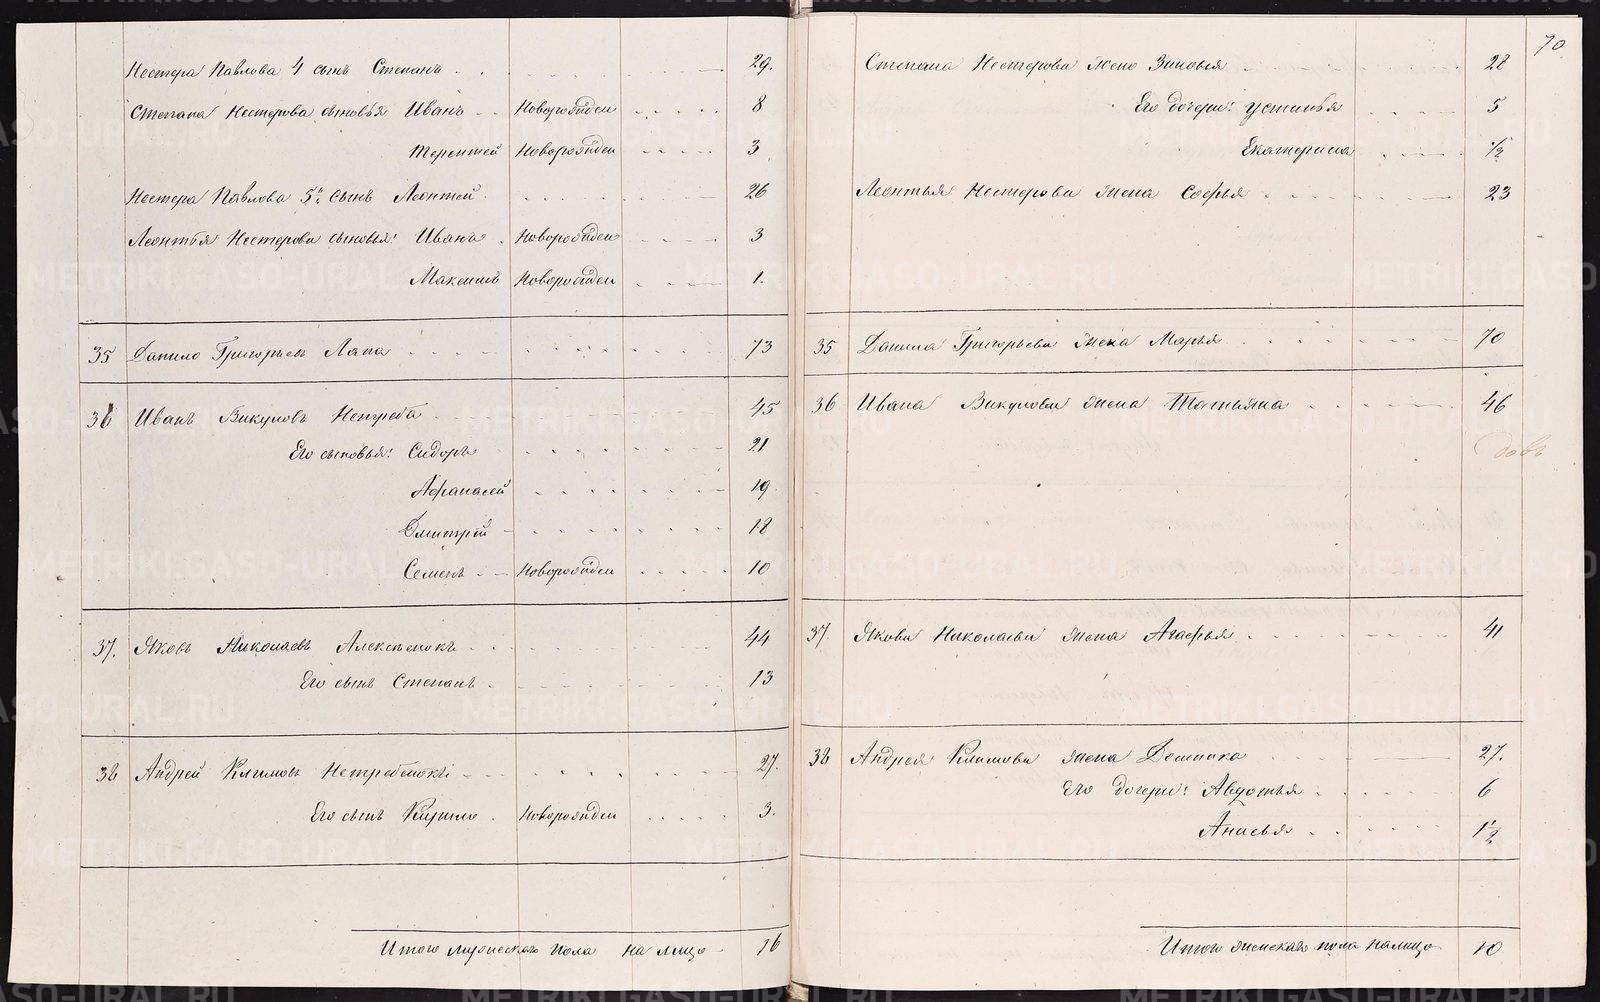 Нестера Павлова 4 сынъ Степанъ 29.
Степана Нестерова сыновья Иванъ Новорожден 8
Терентей Новорожден 3
Нестера Павлова 5й сынъ Леонтей 26
Леонтья Нестерова сыновья: Иванъ Новорожден 3
Максимъ Новорожден 1.
35 Данило Григорьевъ Лапа 73
36 Иванъ Викуловъ Нетреба 45
Его сыновья: Сидоръ 21
Афанасей 19
Дмитрiй 18
Семенъ Новорожден 10
37. Яковъ Николаевъ Алексѣенокъ 44
Его сынъ Степанъ 13
38 Андрей Климовъ Нетребенокъ 27.
Его сынъ Кирило Новорожден 3.
Итого мужескаго пола на лицо 16
70
Степана Нестерова жена Зиновья 28
Его дочери: Устинья 5
Екатерина 1/2
Леонтья Нестерова жена Софья 23
35 Данила Григорьева жена Марья 70
36 Ивана Викулова жена Татьяна 46
37. Якова Николаева жена Агафья 41
38 Андрея Климова жена Домника 27.
Его дочери: Авдотья 6
Анисья 1 1/2
Итого женскаго пола налицо 10
METRIKI.GASO-URAL.RU